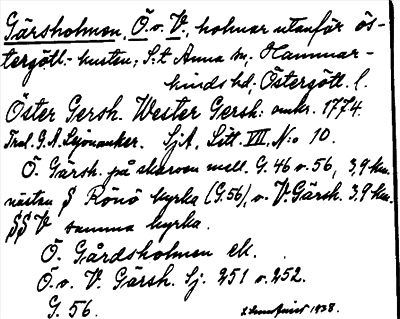 Gärsholmen, Ö. o. V., holmar utanför ös-
tergötl.- kusten; S:t Anna sn; Hammar-
kinds hd, Östergötl. l.
Öster Gersh. Wester Gersh: omkr. 1774.
G. A. Lejonanker. SjA, Litt. VII, N:o 10.
Ö. Gärsh. på skarven mell. G. 46 o. 56, 3,9 km.
nästan S Rönö kyrka (G. 56), o. V. Gärsh. 3,9 km.
SSV samma kyrka.
Ö. Gårdsholmen ek.
Ö. o. V. Gärsh. Sj. 251 o. 252.
G. 56.
1938.